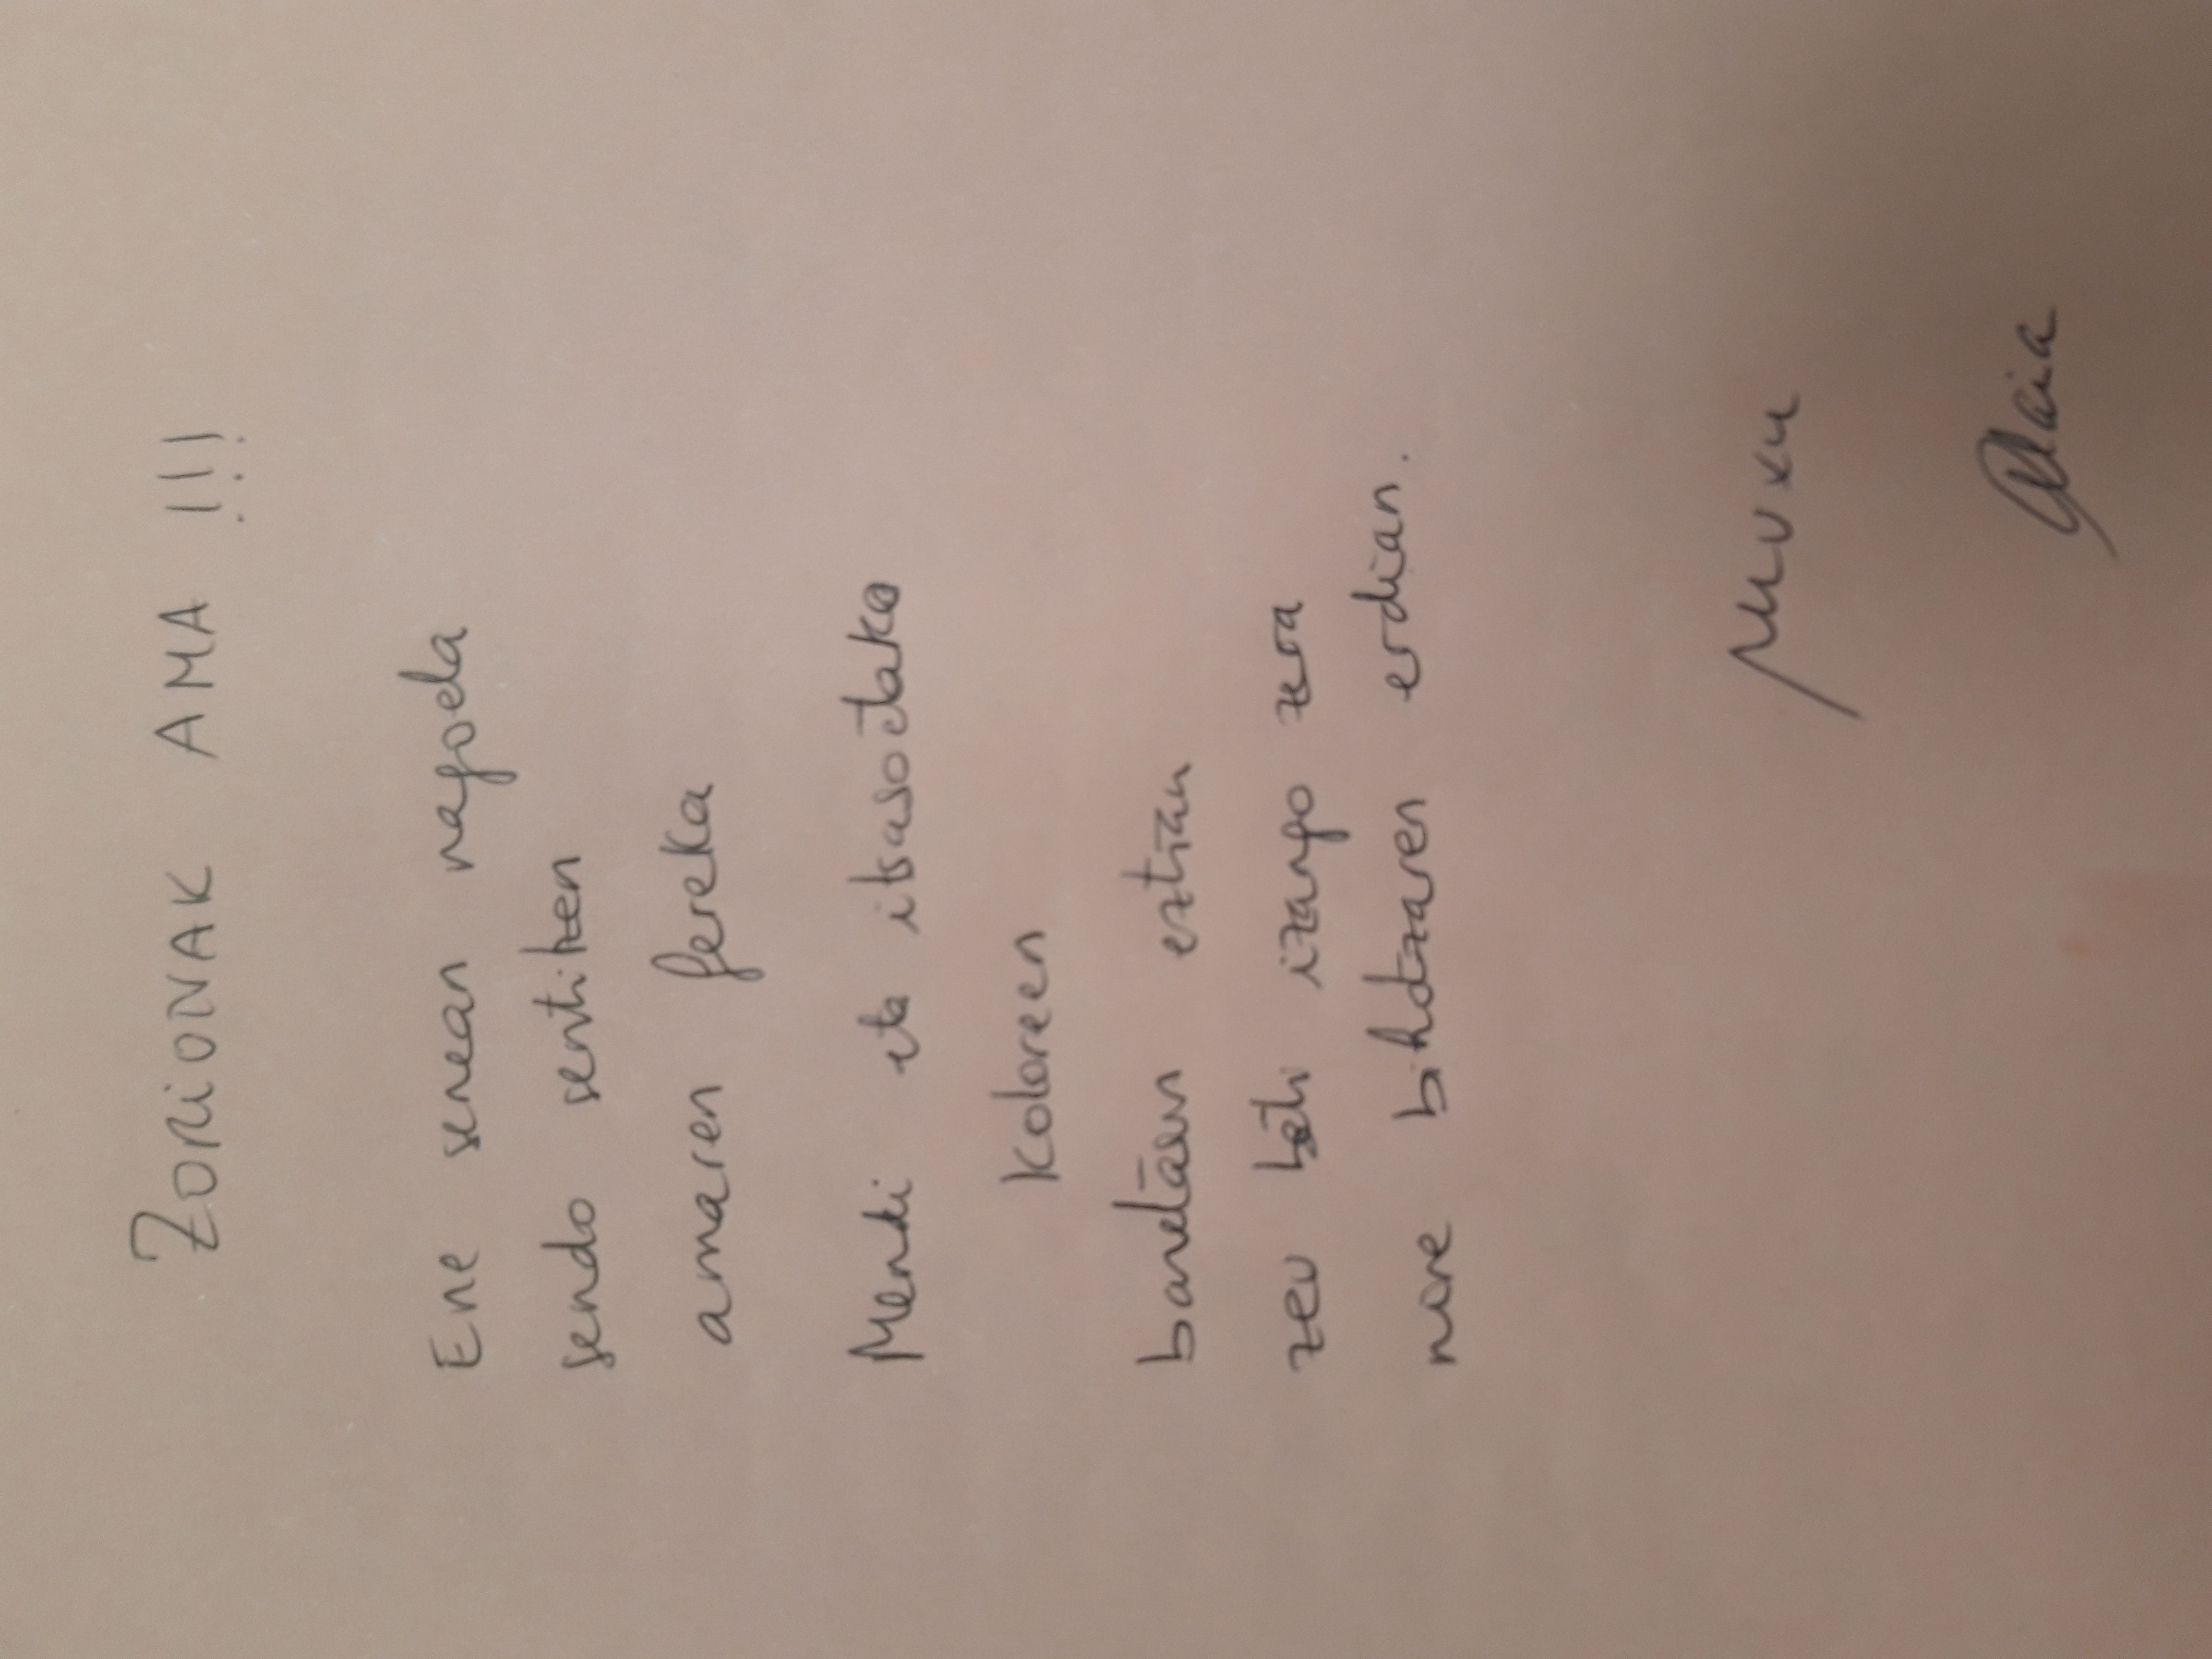 ZORIONAK AMA !!!
Ene senean nagoela
sendo sentitzen
amaren fereka
Mendi eta itsasoetako
koloreen
eztian
zeu beti izango zera
nire bihotzaren erdian.
Muxu